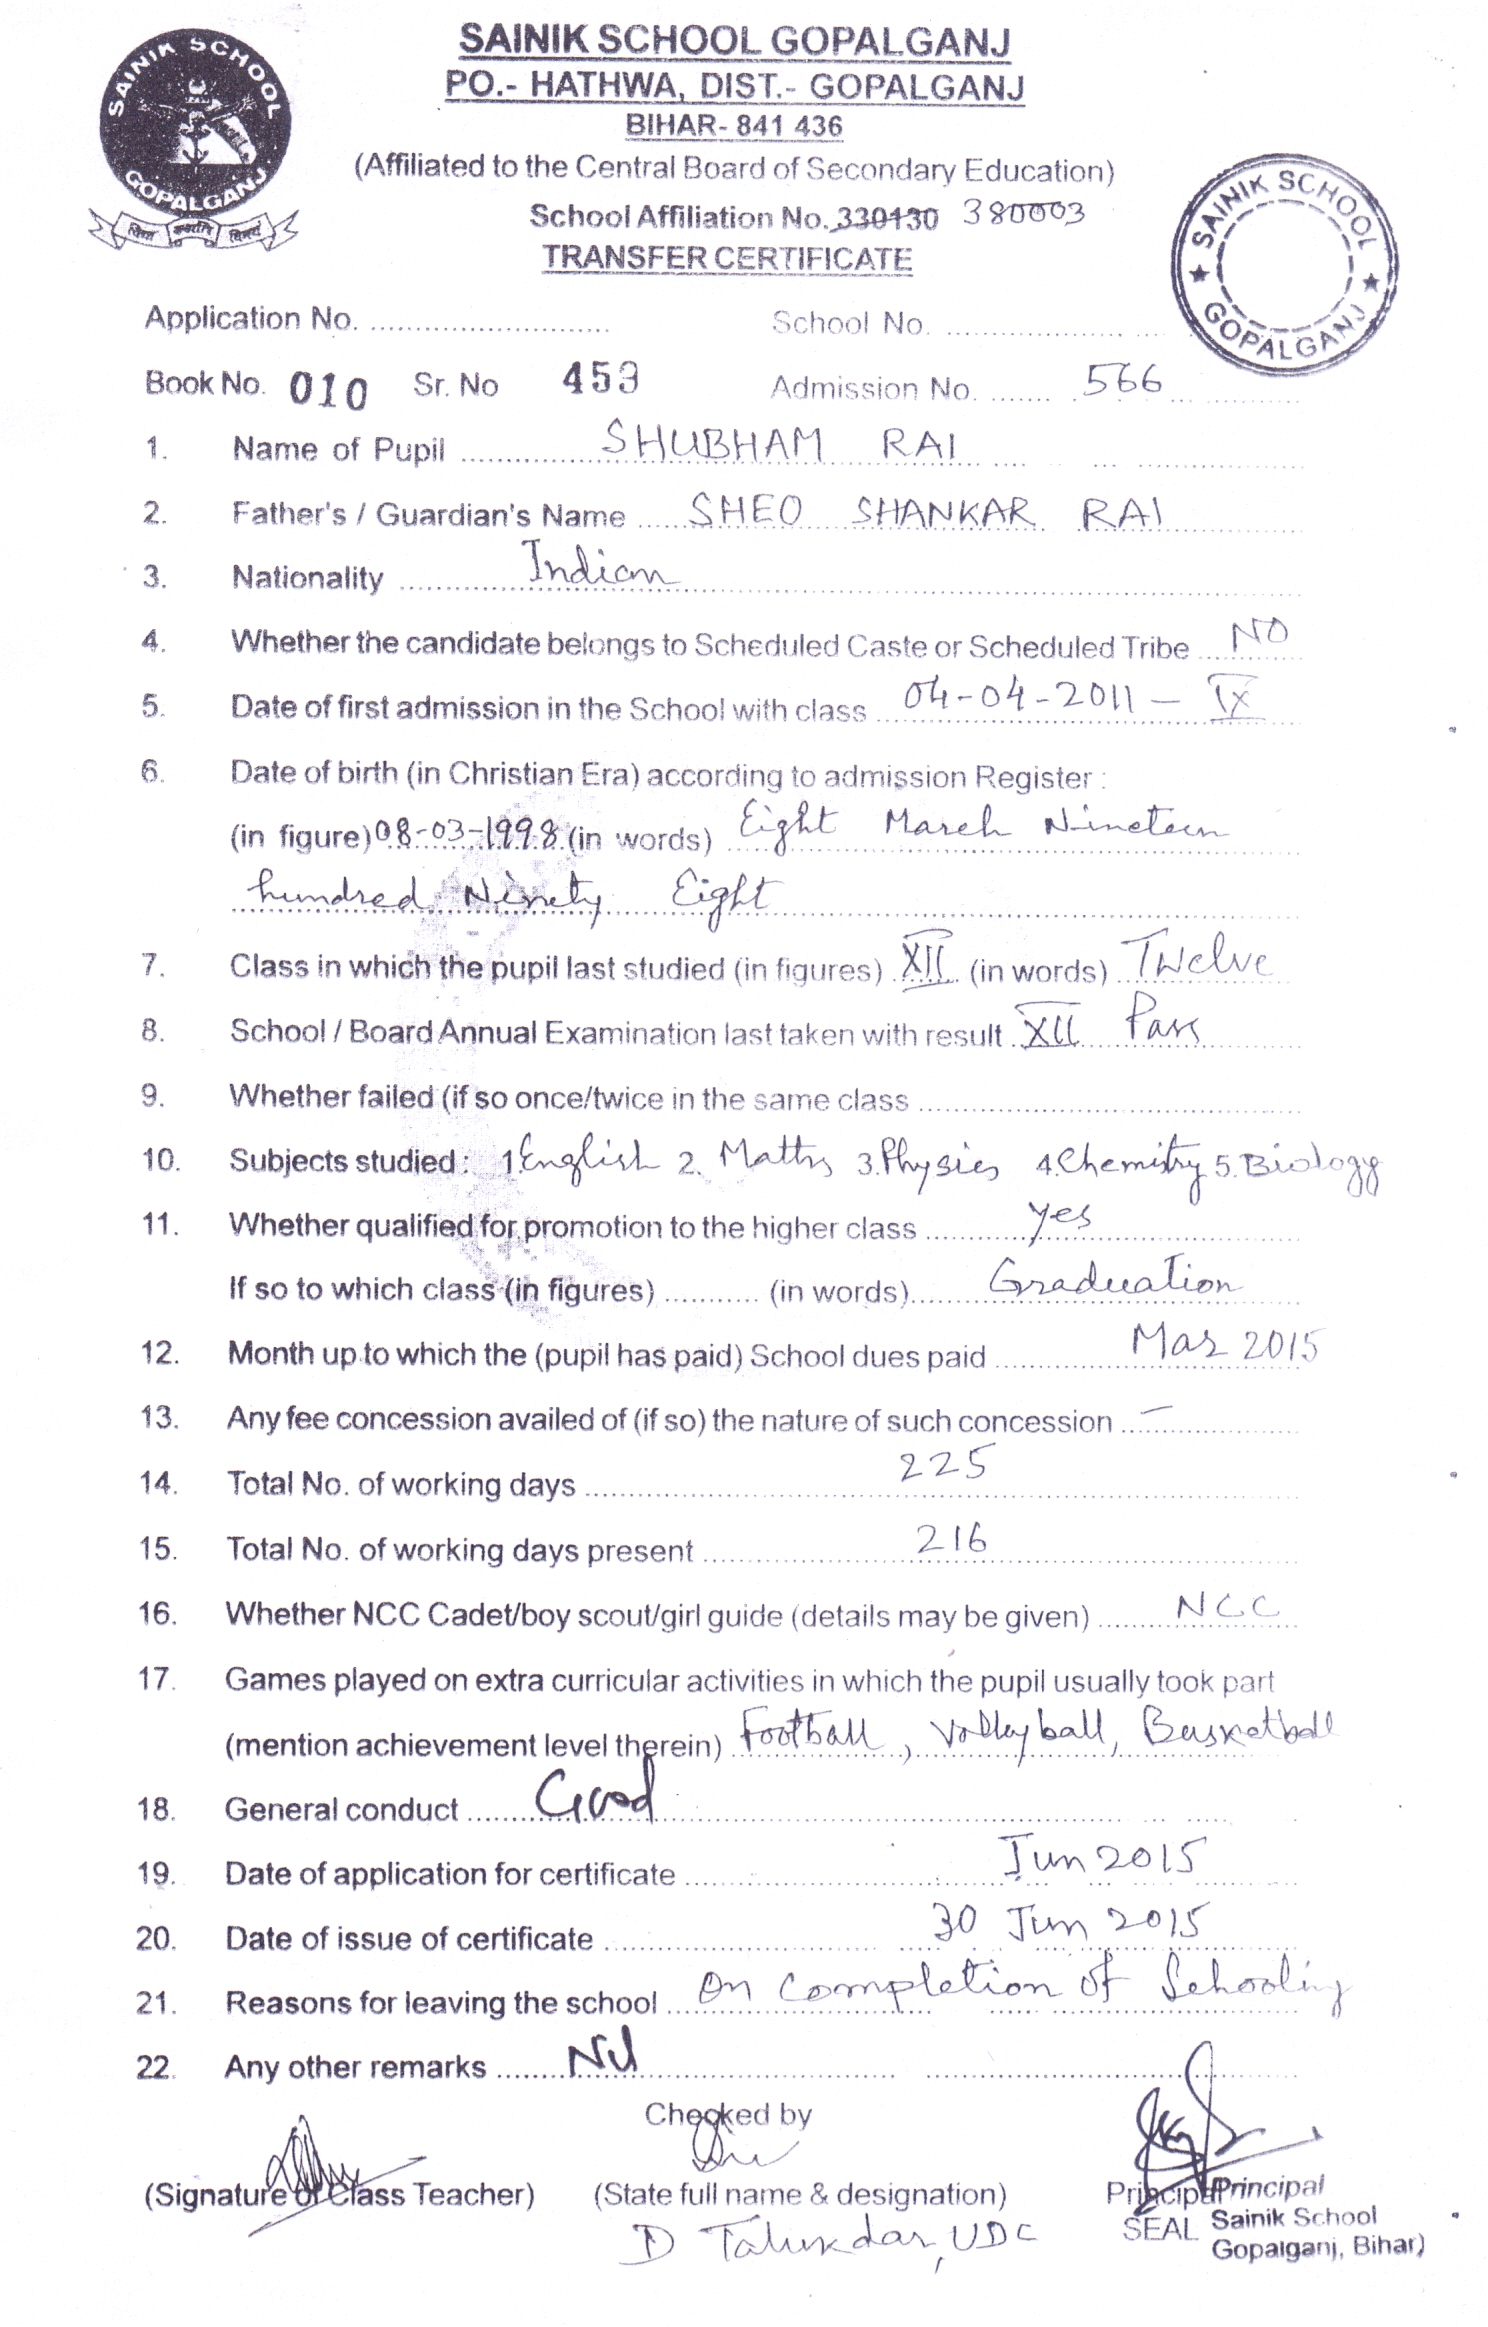 SAINIK SCHOOL GOPALGANJ
SAINIK SCHOOL GOPALGANJ
PO.- HATHWA, DIST.- GOPALGANJ
BIHAR- 841 436
(Affiliated to the Central Board of Secondary Education)
School Affiliation No. 330130 380003
TRANSFER CERTIFICATE
SAINIK SCHOOL ★ GOPALGANJ ★
Application No. .......................... School No. ......................
Book No. 010 Sr. No 459 Admission No. ....... 566
1. Name of Pupil SHUBHAM RAI
2. Father's / Guardian's Name SHEO SHANKAR RAI
3. Nationality Indian
4. Whether the candidate belongs to Scheduled Caste or Scheduled Tribe NO
5. Date of first admission in the School with class 04-04-2011 – IX
6. Date of birth (in Christian Era) according to admission Register :
(in figure) 08-03-1998 (in words) Eight March Nineteen
hundred Ninety Eight
7. Class in which the pupil last studied (in figures) XII (in words) Twelve
8. School / Board Annual Examination last taken with result XII Pass
9. Whether failed (if so once/twice in the same class
10. Subjects studied : 1. English 2. Maths 3. Physics 4. Chemistry 5. Biology
11. Whether qualified for promotion to the higher class yes
If so to which class (in figures) ........... (in words) Graduation
12. Month up to which the (pupil has paid) School dues paid Mar 2015
13. Any fee concession availed of (if so) the nature of such concession –
14. Total No. of working days 225
15. Total No. of working days present 216
16. Whether NCC Cadet/boy scout/girl guide (details may be given) NCC
17. Games played on extra curricular activities in which the pupil usually took part
(mention achievement level therein) Football, Volleyball, Basketball
18. General conduct Good
19. Date of application for certificate Jun 2015
20. Date of issue of certificate 30 Jun 2015
21. Reasons for leaving the school On completion of Schooling
22. Any other remarks Nil
Checked by
(Signature of Class Teacher) (State full name & designation) Principal Principal
D Talukdar, UDC SEAL Sainik School
Gopalganj, Bihar)